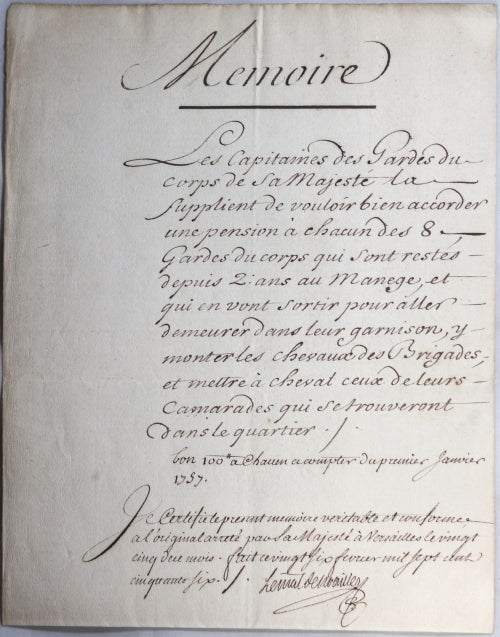 Memoire
Les Capitaines des Gardes du
corps de Sa Majesté la
supplient de vouloir bien accorder
une pension à chacun des 8
Gardes du corps qui sont restés
depuis 2. ans au Manege, et
qui en vont sortir pour aller
demeurer dans leur garnison, y
monter les chevaux des Brigades,
et mettre à cheval ceux de leurs
Camarades qui se trouveront
dans le quartier ./.
bon 100.tt a Chacun a compter du premier Janvier
1757.
Je Certifie le present memoire veritable et conforme
a l'original arreté par Sa Majesté à Versailles le vingt
cinq de ce mois. fait ce vingt six fevrier mil sept cent
cinquante six ./.
Le mal de Noailles